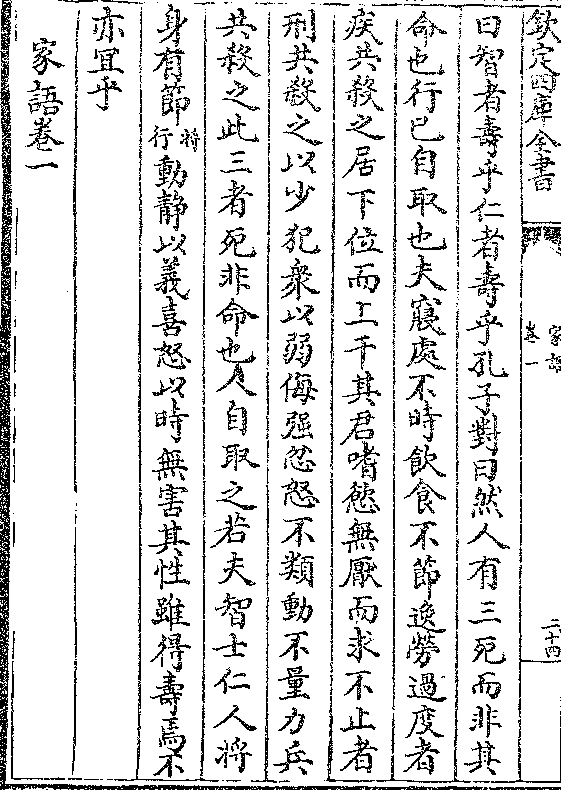 欽定四庫全書
家語
卷一
二十四
曰智者壽乎仁者壽乎孔子對曰然人有三死而非其
命也行已自取也夫寢處不時飲食不節逸勞過度者
疾共殺之居下位而上干其君嗜慾無厭而求不止者
刑共殺之以少犯衆以弱侮强忿怒不類動不量力兵
共殺之此三者死非命也人自取之若夫智士仁人將
身有節將行動靜以義喜怒以時無害其性雖得壽焉不
亦宜乎
家語卷一